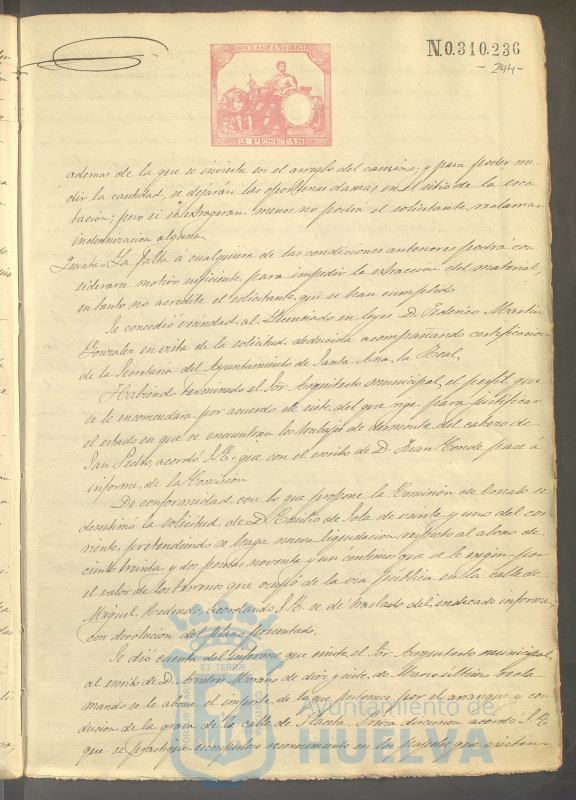 10ª CLASE AÑO 1885
N.0.310.236
- 244 -
2 PESETAS
ademas de la que se invierta en el arreglo del camino; y para poder me-
dir la cantidad se dejarán las oportunas damas en el sitio de la esca-
bacion; pero si se estrageran menos no podrá el solicitante reclamar
indemnizacion alguna.
Quinta. La falta á cualquiera de las condiciones anteriores podrá con-
siderarse motivo suficiente para impedir la estraccion del material,
en tanto no acredite el solicitante que se han cumplido.
Se concedió vecindad al Licenciado en leyes D. Federico Martin
Gonzalez en vista de la solicitud deducida acompañando certificacion
de la Secretaria del Ayuntamiento de Santa Ana la Real.
Habiendo terminado el Sor. Arquitecto municipal el perfil que
se le encomendara por acuerdo de siete del que rige para justificar
el estado en que se encuentran los trabajos de desmonte del cabezo de
San Pedro, acordó S.E. que con el escrito de D. Juan Conde pase á
informe de la Comision.
De conformidad con lo que propone la Comision de Ornato se
desestimó la solicitud de D. Emilio de Sola de veinte y uno del cor-
riente, pretendiendo se haga nueva liquidacion respecto al abono de
ciento treinta y dos pesetas noventa y un céntimos que se le exigen por
el valor de los terrenos que ocupó de la via publica en la calle de
Miguel Redondo, acordando S.E. se dé traslado del indicado informe,
con devolucion del plano presentado.
Se dió cuenta del informe que emite el Sor. Arquitecto municipal
al escrito de D. Andrés Morano de diez y siete de Enero último recla-
mando se le abone el importe de lo que pertenece por el arranque y con-
duccion de la grava de la calle de Placeta. Previa discusion acordó S.E.
que se practique un nuevo reconocimiento en los puntos que existan
Ayuntamiento de
HUELVA